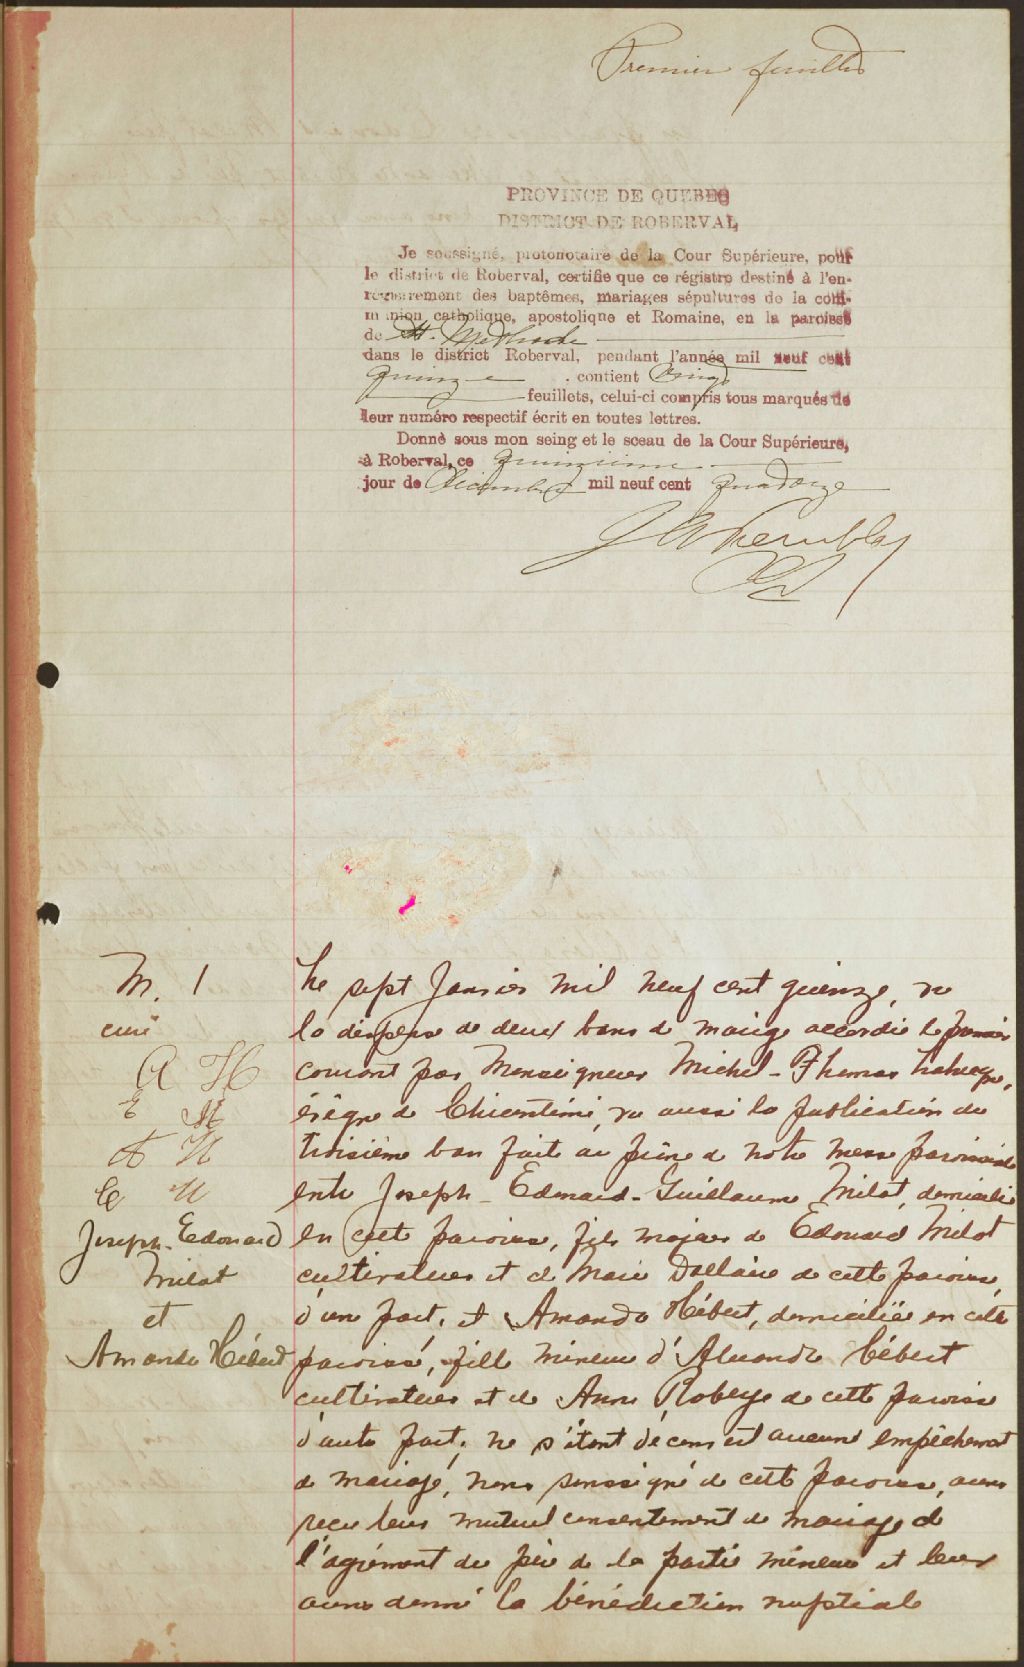 Premier feuillet
PROVINCE DE QUEBEC
DISTRICT DE ROBERVAL
Je soussigné, protonotaire de la Cour Supérieure, pour
le district de Roberval, certifie que ce régistre destiné à l'en-
régistrement des baptêmes, mariages sépultures de la com-
munion catholique, apostolique et Romaine, en la paroisse
de St. Methode
dans le district Roberval, pendant l'année mil neuf cent
quinze contient vingt
feuillets, celui-ci compris tous marqués de
leur numéro respectif écrit en toutes lettres.
Donné sous mon seing et le sceau de la Cour Supérieure,
à Roberval, ce quinzième
jour de Décembre mil neuf cent quatorze
M. 1
curé
A H
E M
A H
E M
Joseph-Edouard
Milot
et
Amanda Hébert
Le sept Janvier mil neuf cent quinze, vu
la dispense de deux bans de mariage accordée le premier
courant par Monseigneur Michel-Thomas Labrecque,
évêque de Chicoutimi, vu aussi la publication du
troisième ban faite au prône de notre messe paroissiale
entre Joseph-Edouard-Guillaume Milot, domicilié
en cette paroisse, fils majeur de Edouard Milot
cultivateur et de Marie Dallaire de cette paroisse,
d'une part, et Amanda Hébert, domiciliée en cette
paroisse, fille mineure d' Hébert
cultivateur et de Anna de cette paroisse
d'autre part, ne s'étant découvert aucun empêchement
de mariage, nous soussigné de cette paroisse, avons
reçu leur mutuel consentement de mariage de
l'agrément du père de la partie mineure et leur
avons donné la bénédiction nuptiale